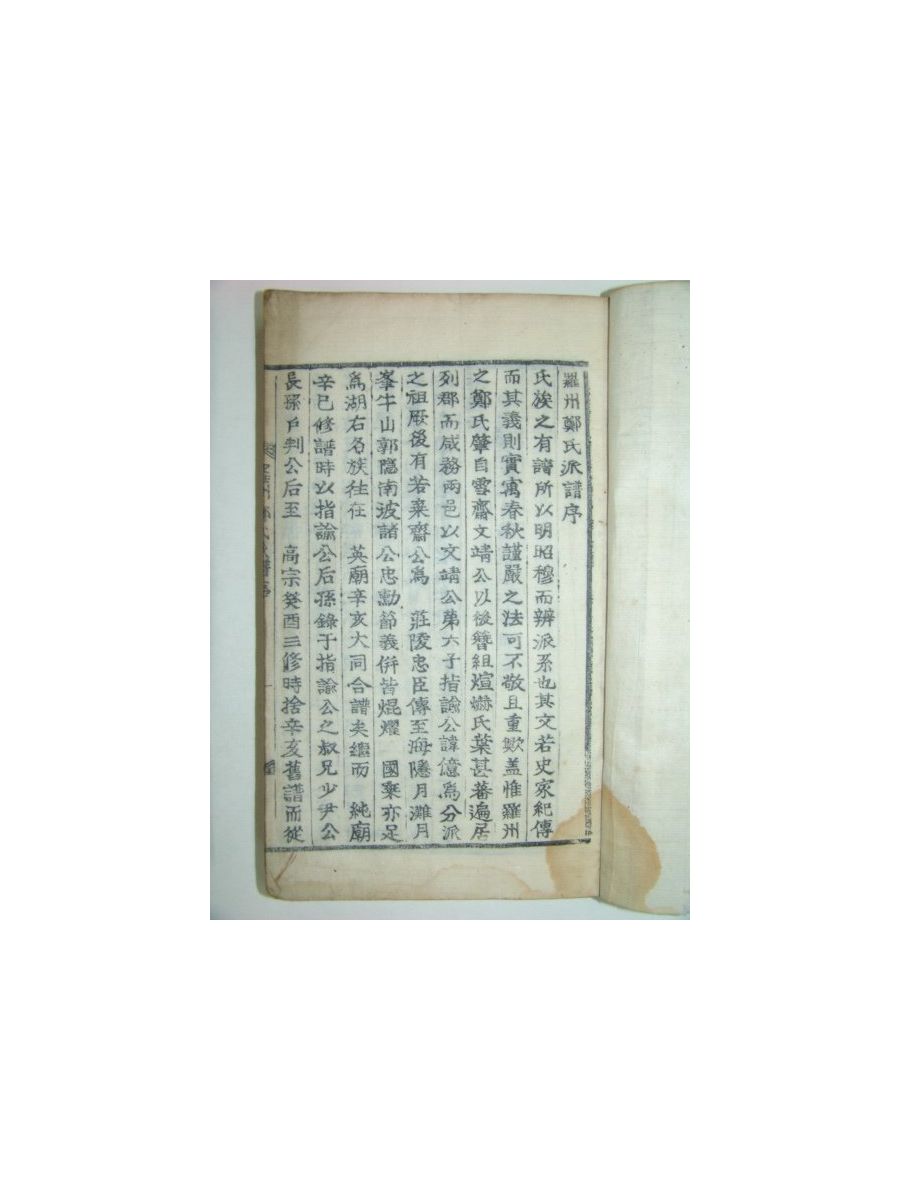 羅州鄭氏派譜序
氏族之有譜所以明昭穆而辨派系也其文若史家紀傳
而其義則實寓春秋謹嚴之法可不敬且重歟盖惟羅州
之鄭氏肇自雪齋文靖公以後簪組煊爀氏葉甚蕃遍居
列郡而咸務兩邑以文靖公第六子指諭公諱億爲分派
之祖厥後有若棄齋公爲 莊陵忠臣傳至海隱月灘月
峯牛山郭隱南波諸公忠勳節義倂皆焜燿 國乘亦足
爲湖右名族往在 英廟辛亥大同合譜矣繼而 純廟
辛巳修譜時以指諭公后孫錄于指諭公之叔兄少尹公
長孫戶判公后至 高宗癸酉三修時捨辛亥舊譜而從